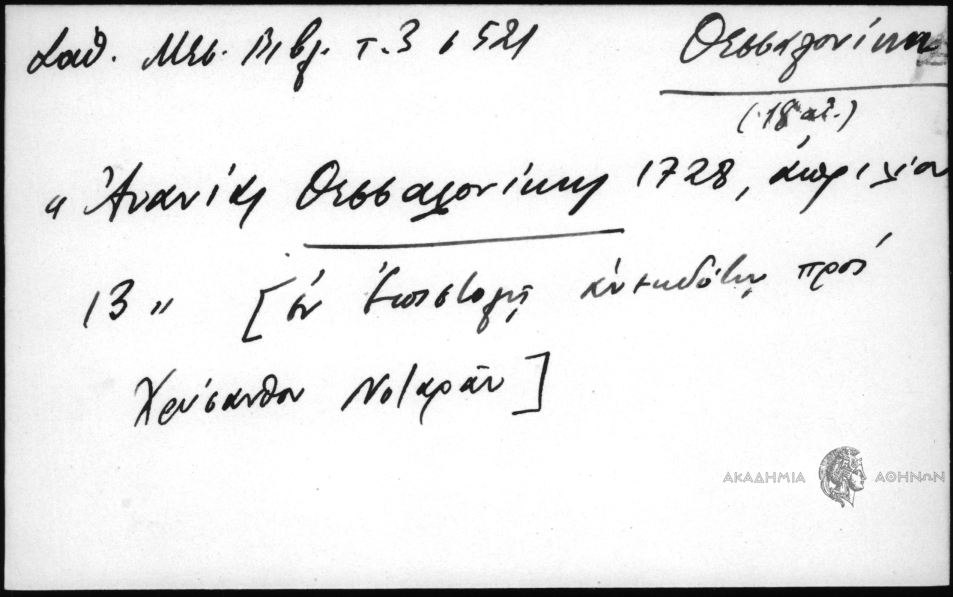 Σαθ. Μεσ. Βιβλ. τ. 3 σ 521
Θεσσαλονίκη
(18 αἰ.)
"Ἀνανίας Θεσσαλονίκης 1728, ἀπριλίου
13" [ἐν ἐπιστολῇ ἀνεκδότῳ πρὸς
Χρύσανθον Νοταρᾶν]
ΑΚΑΔΗΜΙΑ ΑΘΗΝΩΝ